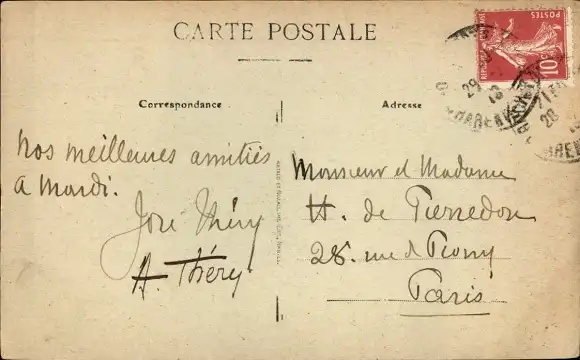 CARTE POSTALE
REPUBLIQUE FRANÇAISE
POSTES
10c
Correspondance
Adresse
Nos meilleures amitiés
A Mardi.
José Théry
A. Théry
Monsieur et Madame
H. de Pierredon
28. rue de Prony
Paris